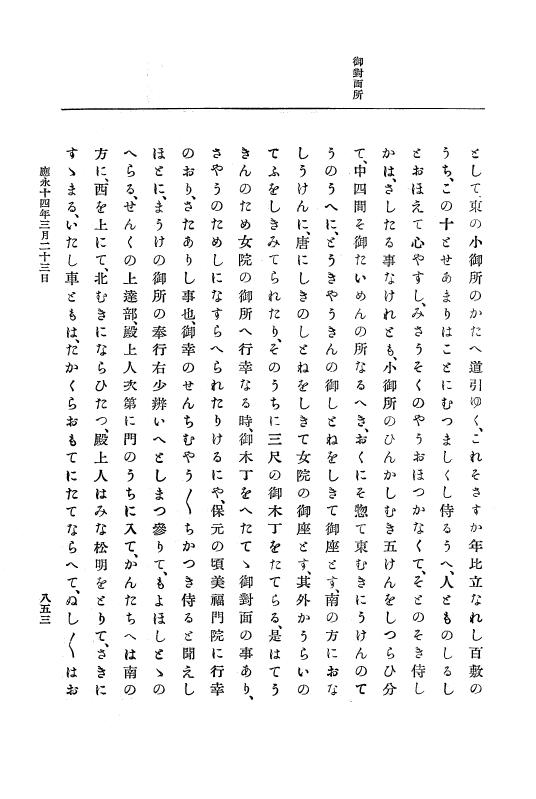 御對面所
として、東の小御所のかたへ道引ゆく、これそさすか年比立なれし百敷の
うち、この十とせあまりはことにむつましくし侍るうへ、人ともものしるし
とおほえて心やすし、みさうそくのやうおほつかなくて、そとのそき侍し
かは、さしたる事なけれとも、小御所のひんかしむき五けんをしつらひ分
て、中四間そ御たいめんの所なるへき、おくにそ惣て東むきにうけんのて
うのうへに、とうきやうきんの御しとねをしきて御座とす、南の方におな
しうけんに、唐にしきのしとねをしきて女院の御座とす、其外かうらいの
てふをしきみてられたり、そのうちに三尺の御木丁をたてらる、是はてう
きんのため女院の御所へ行幸なる時、御木丁をへたてゝ御對面の事あり、
さやうのためしになすらへられたりけるにや、保元の頃美福門院に行幸
のおり、さたありし事也、御幸のせんちむやう〳〵ちかつき侍ると聞えし
ほとに、まうけの御所の奉行右少辨いへとしまつ參りて、もよほしとゝの
へらる、せんくの上達部殿上人次第に門のうちに入て、かんたちへは南の
方に、西を上にて、北むきにならひたつ、殿上人はみな松明をとりて、さきに
すゝまる、いたし車ともは、たかくらおもてにたてならへて、ぬし〳〵はお
應永十四年三月二十三日
八五三